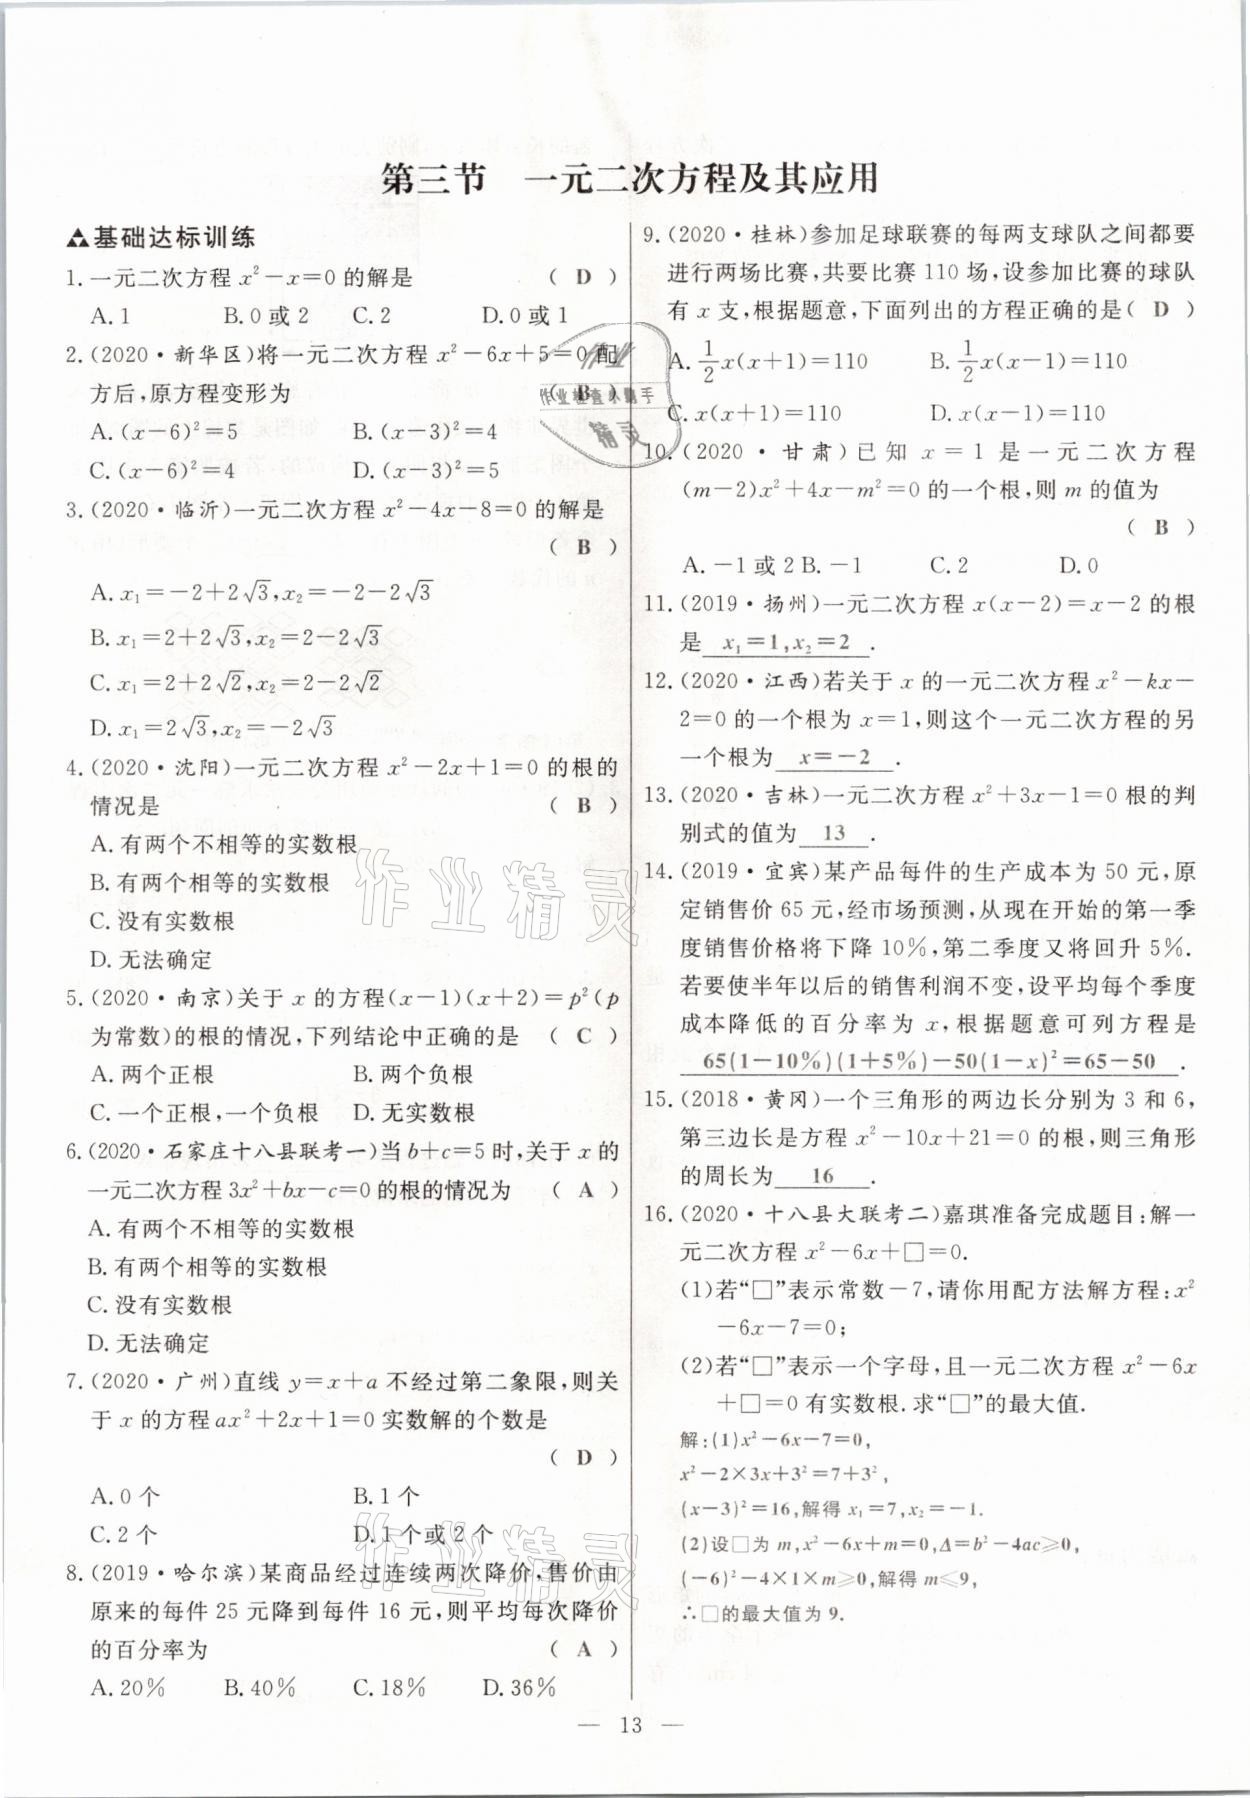 第三节　一元二次方程及其应用
基础达标训练
1.一元二次方程 x²－x＝0 的解是　（ D ）
A.1　B.0 或 2　C.2　D.0 或 1
2.(2020·新华区)将一元二次方程 x²－6x＋5＝0 配
方后,原方程变形为　（ B ）
A.(x－6)²＝5　B.(x－3)²＝4
C.(x－6)²＝4　D.(x－3)²＝5
3.(2020·临沂)一元二次方程 x²－4x－8＝0 的解是
（ B ）
A.x₁＝－2＋2√3,x₂＝－2－2√3
B.x₁＝2＋2√3,x₂＝2－2√3
C.x₁＝2＋2√2,x₂＝2－2√2
D.x₁＝2√3,x₂＝－2√3
4.(2020·沈阳)一元二次方程 x²－2x＋1＝0 的根的
情况是　（ B ）
A.有两个不相等的实数根
B.有两个相等的实数根
C.没有实数根
D.无法确定
5.(2020·南京)关于 x 的方程(x－1)(x＋2)＝p²(p
为常数)的根的情况,下列结论中正确的是　（ C ）
A.两个正根　B.两个负根
C.一个正根,一个负根　D.无实数根
6.(2020·石家庄十八县联考一)当 b＋c＝5 时,关于 x 的
一元二次方程3x²＋bx－c＝0 的根的情况为　（ A ）
A.有两个不相等的实数根
B.有两个相等的实数根
C.没有实数根
D.无法确定
7.(2020·广州)直线 y＝x＋a 不经过第二象限,则关
于 x 的方程 ax²＋2x＋1＝0 实数解的个数是
（ D ）
A.0 个　B.1 个
C.2 个　D.1 个或 2 个
8.(2019·哈尔滨)某商品经过连续两次降价,售价由
原来的每件 25 元降到每件 16 元,则平均每次降价
的百分率为　（ A ）
A.20%　B.40%　C.18%　D.36%
9.(2020·桂林)参加足球联赛的每两支球队之间都要
进行两场比赛,共要比赛 110 场,设参加比赛的球队
有 x 支,根据题意,下面列出的方程正确的是（ D ）
A.1/2x(x＋1)＝110　B.1/2x(x－1)＝110
C.x(x＋1)＝110　D.x(x－1)＝110
10.(2020·甘肃)已知 x＝1 是一元二次方程
(m－2)x²＋4x－m²＝0 的一个根,则 m 的值为
（ B ）
A.－1 或 2　B.－1　C.2　D.0
11.(2019·扬州)一元二次方程 x(x－2)＝x－2 的根
是 x₁＝1,x₂＝2 .
12.(2020·江西)若关于 x 的一元二次方程 x²－kx－
2＝0 的一个根为 x＝1,则这个一元二次方程的另
一个根为 x＝－2 .
13.(2020·吉林)一元二次方程 x²＋3x－1＝0 根的判
别式的值为 13 .
14.(2019·宜宾)某产品每件的生产成本为 50 元,原
定销售价 65 元,经市场预测,从现在开始的第一季
度销售价格将下降 10%,第二季度又将回升 5%.
若要使半年以后的销售利润不变,设平均每个季度
成本降低的百分率为 x,根据题意可列方程是
65(1－10%)(1＋5%)－50(1－x)²＝65－50 .
15.(2018·黄冈)一个三角形的两边长分别为 3 和 6,
第三边长是方程 x²－10x＋21＝0 的根,则三角形
的周长为 16 .
16.(2020·十八县大联考二)嘉琪准备完成题目:解一
元二次方程 x²－6x＋□＝0.
(1)若“□”表示常数－7,请你用配方法解方程:x²
－6x－7＝0;
(2)若“□”表示一个字母,且一元二次方程 x²－6x
＋□＝0 有实数根.求“□”的最大值.
解:(1)x²－6x－7＝0,
x²－2×3x＋3²＝7＋3²,
(x－3)²＝16,解得 x₁＝7,x₂＝－1.
(2)设□为 m,x²－6x＋m＝0,Δ＝b²－4ac≥0,
(－6)²－4×1×m≥0,解得 m≤9,
∴□的最大值为 9.
— 13 —
作业
作业检查小助手
精灵
作业精灵
作业精灵